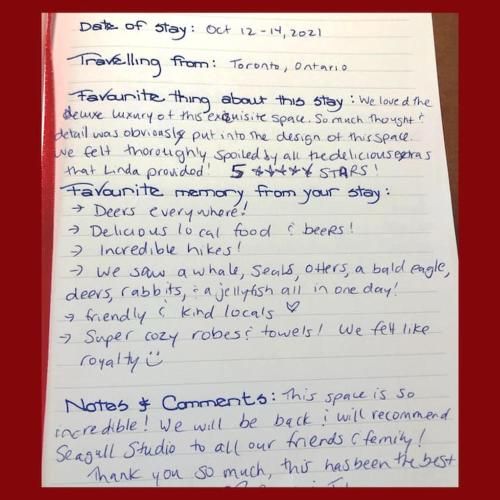 Date of stay: Oct 12-14, 2021
Travelling from: Toronto, Ontario
Favourite thing about this stay: We loved the
deluxe luxury of this exquisite space. So much thought &
detail was obviously put into the design of this space.
We felt thoroughly spoiled by all the delicious extras
that Linda provided! 5 ☆☆☆☆☆ STARS!
Favourite memory from your stay:
→ Deers everywhere!
→ Delicious local food & beers!
→ Incredible hikes!
→ We saw a whale, seals, otters, a bald eagle,
deers, rabbits, & a jellyfish all in one day!
→ friendly & kind locals ♡
→ Super cozy robes & towels! We felt like
royalty ☺
Notes & Comments: This space is so
incredible! We will be back & will recommend
Seagull Studio to all our friends & family!
Thank you so much, this has been the best